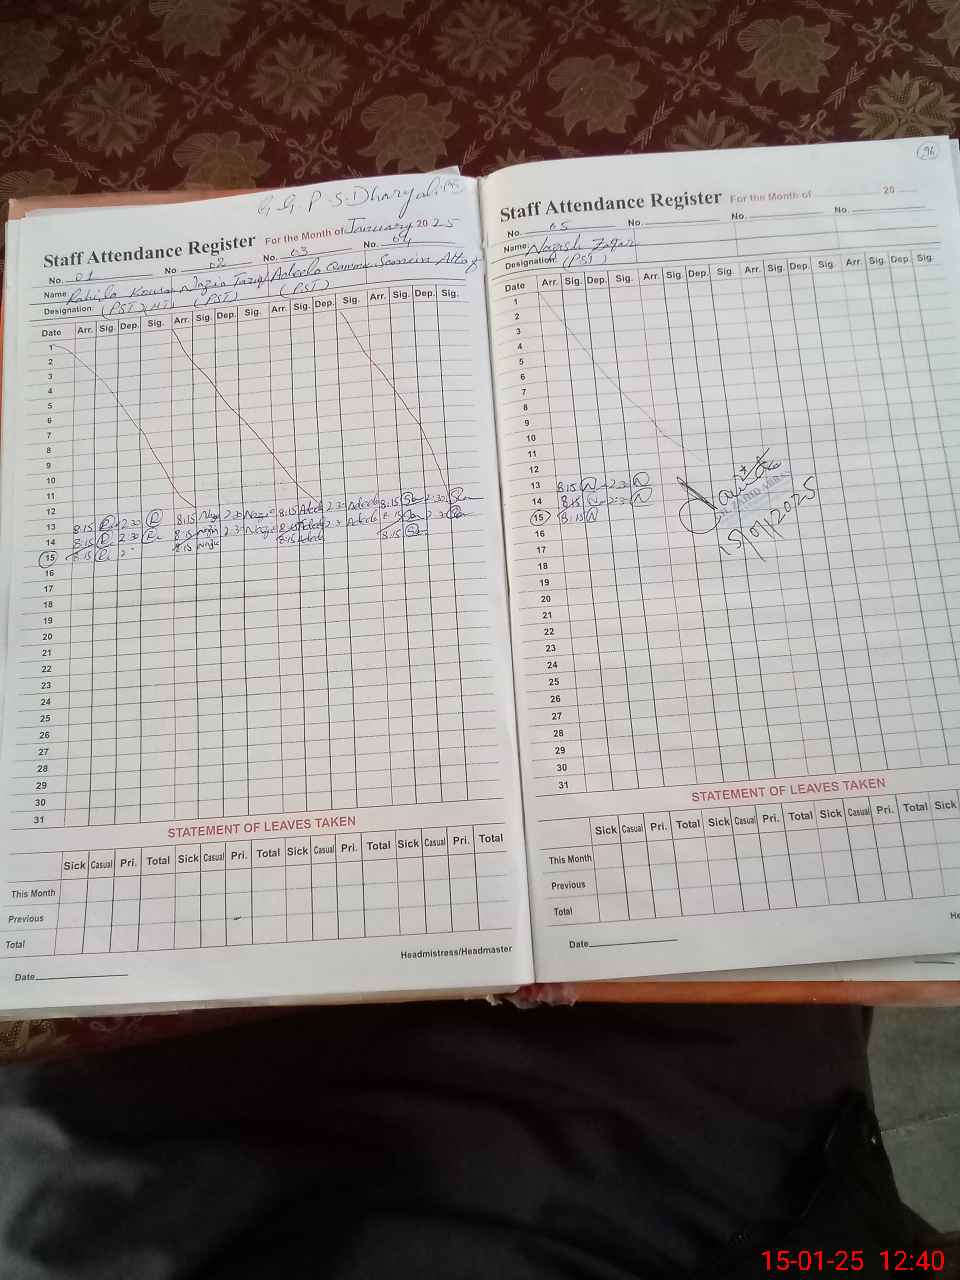 G.G.P.S. Dharyal
Staff Attendance Register For the Month of January 2025
No. 01 No. 02 No. 03 No. 04
Name: Rahila Kousar Nazia Tariq Adeela Samreen Altaf
Designation: (PST) (HT) (PST) (PST)
Date Arr. Sig. Dep. Sig. Arr. Sig. Dep. Sig. Arr. Sig. Dep. Sig. Arr. Sig. Dep. Sig.
1
2
3
4
5
6
7
8
9
10
11
12
13 8:15 2:30 8:15 2:30 8:15 Adeela 2:30 Adeela 8:15 2:30
14 8:15 2:30 8:15 2:30 8:15 Adeela 2:30 Adeela 8:15 2:30
15 8:15 8:15 8:15 Adeela 8:15
16
17
18
19
20
21
22
23
24
25
26
27
28
29
30
31
STATEMENT OF LEAVES TAKEN
Sick Casual Pri. Total Sick Casual Pri. Total Sick Casual Pri. Total Sick Casual Pri. Total
This Month
Previous
Total
Headmistress/Headmaster
Date
96
Staff Attendance Register For the Month of 20
No. 05 No. No. No.
Name: Nazish Zafar
Designation: (PST)
Date Arr. Sig. Dep. Sig. Arr. Sig. Dep. Sig. Arr. Sig. Dep. Sig. Arr. Sig. Dep. Sig.
1
2
3
4
5
6
7
8
9
10
11
12
13 8:15 N 2:30 N
14 8:15 N 2:30 N
15 8:15 N
15/01/2025
16
17
18
19
20
21
22
23
24
25
26
27
28
29
30
31
STATEMENT OF LEAVES TAKEN
Sick Casual Pri. Total Sick Casual Pri. Total Sick Casual Pri. Total Sick
This Month
Previous
Total
Date
He
15-01-25 12:40